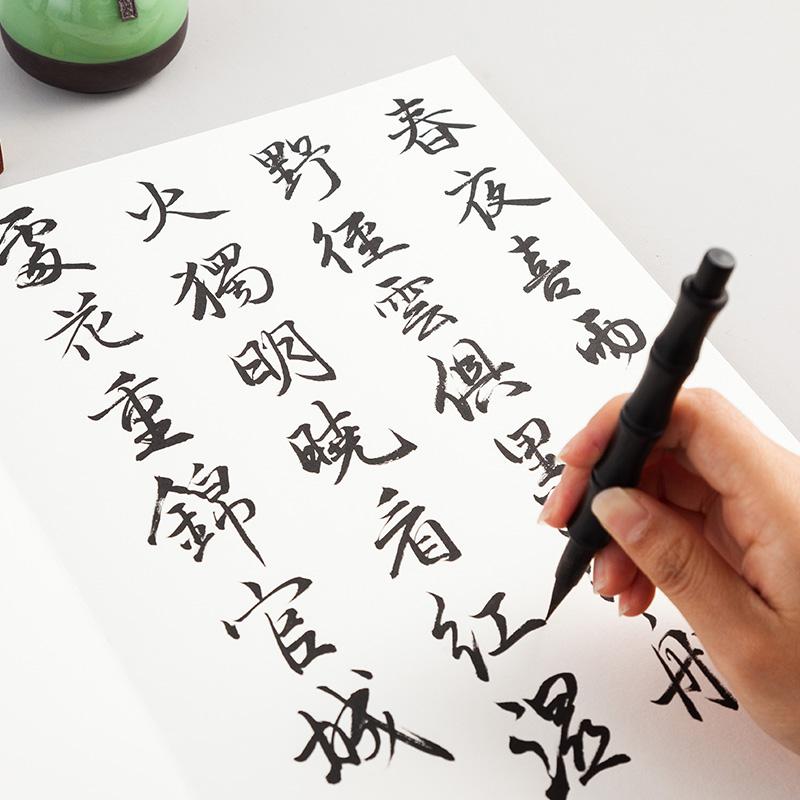 春夜喜雨
野徑雲俱黑
火獨明曉看紅濕
處花重錦官城